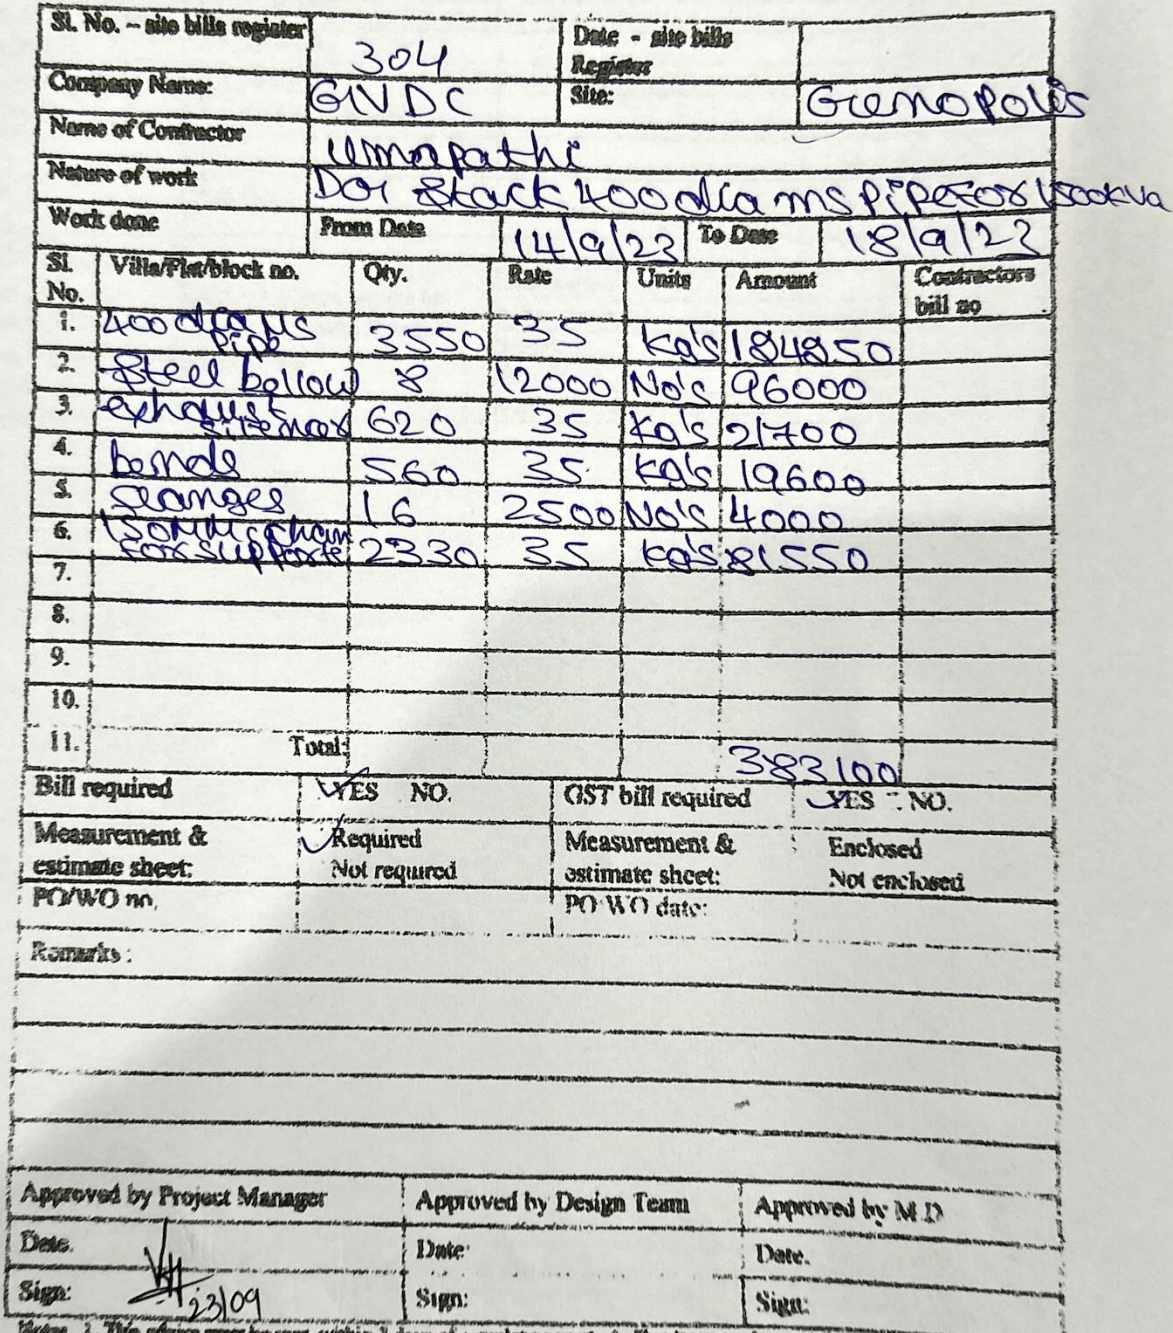 Sl. No. - site bills register 304 Date - site bills Register
Company Name: GVDC Site: Genopolis
Name of Contractor Umapathi
Nature of work DG Stack 400 dia ms pipe for 1500kva
Work done From Date 14/9/23 To Date 18/9/23
Sl. No. Villa/Flat/block no. Qty. Rate Units Amount Contractors bill no
1. 400 dia MS pipe 3550 35 Kg's 184850
2. Steel bellow 8 12000 No's 96000
3. exhaust 620 35 Kg's 21700
4. bends 560 35 Kg's 19600
5. flanges 16 2500 No's 4000
6. 150MM chan for supports 2330 35 Kg's 81550
7.
8.
9.
10.
11. Total: 383100
Bill required YES NO. GST bill required YES NO.
Measurement & estimate sheet: Required Not required Measurement & estimate sheet: Enclosed Not enclosed
PO/WO no. PO WO date:
Remarks:
Approved by Project Manager Approved by Design Team Approved by M D
Date. Date: Date.
Sign: 23/09 Sign: Sign: